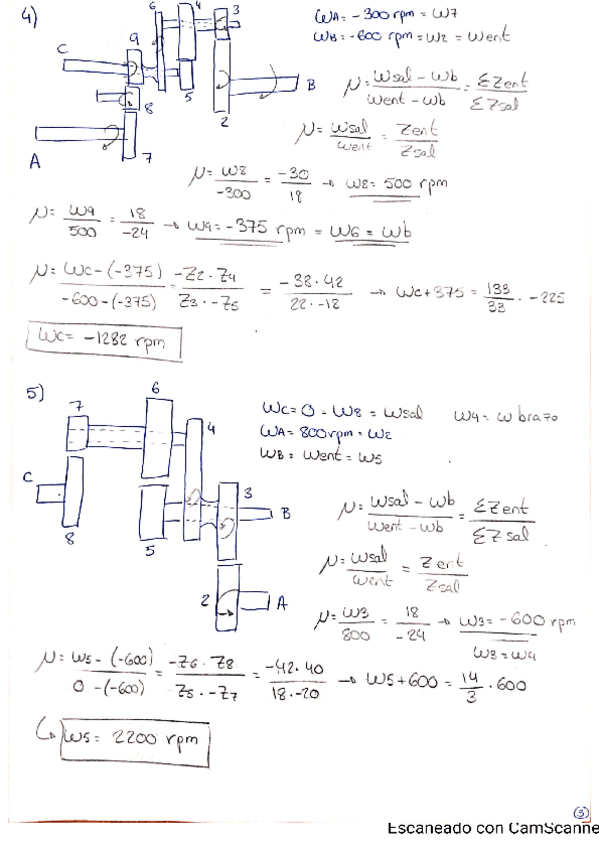 4)
6 4 3
C 9
5 B
8 2
A 7
ωA = -300 rpm = ω7
ωB = -600 rpm = ω2 = ωent
μ = (ωsal - ωb)/(ωent - ωb) = ΣZent/ΣZsal
μ = ωsal/ωent = Zent/Zsal
μ = ω8/-300 = -30/18 → ω8 = 500 rpm
μ = ω9/500 = 18/-24 → ω9 = -375 rpm = ω6 = ωb
μ = (ωc - (-375))/(-600 - (-375)) = (-Z2 · Z4)/(Z3 · -Z5) = (-38 · 42)/(22 · -18) → ωc + 375 = 133/33 · -225
ωc = -1282 rpm
5)
6
7 4
C 3
B
8 5
2 A
ωc = 0 = ω8 = ωsal ω4 = ωbrazo
ωA = 800 rpm = ω2
ωB = ωent = ω5
μ = (ωsal - ωb)/(ωent - ωb) = ΣZent/ΣZsal
μ = ωsal/ωent = Zent/Zsal
μ = ω3/800 = 18/-24 → ω3 = -600 rpm
ω3 = ω4
μ = (ω5 - (-600))/(0 - (-600)) = (-Z6 · Z8)/(Z5 · -Z7) = (-42 · 40)/(18 · -20) → ω5 + 600 = 14/3 · 600
↳ ω5 = 2200 rpm
5
Escaneado con CamScanne